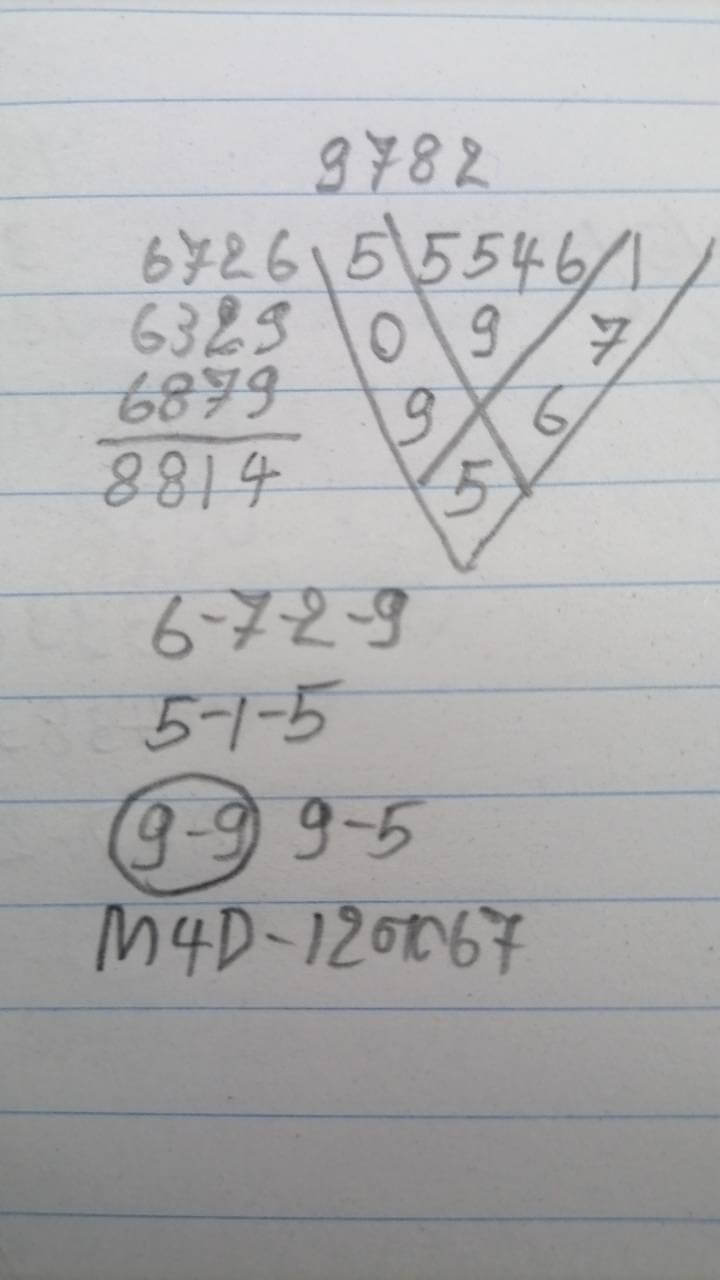 9782
6726 5 5546 1
6329 0 9 7
6879 9 6
8814 5
6-7-2-9
5-1-5
9-9 9-5
M4D-12or67